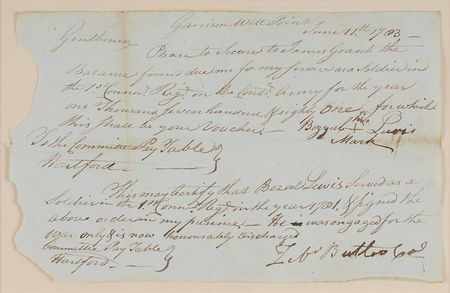 Garrison West Point
June 11th 1783
Gentlemen
Please to Secure to James Grant the
Balance found due me for my Service as a Soldier in
the 1st Connec. Regt. in the Contl. Army for the year
one Thousand Seven hundred & eighty One, for which
this shall be your Voucher. Bezzeel his + Lewis
Mark
To the Committee Pay Table
Hartford
This may Certify that Bezal Lewis Served as a
Soldier in the 1st Conn. Regt. in the year 1781, & signed the
above order in my presence. He was engaged for the
War only & is now honourably discharged
Committee Pay Table
Hartford